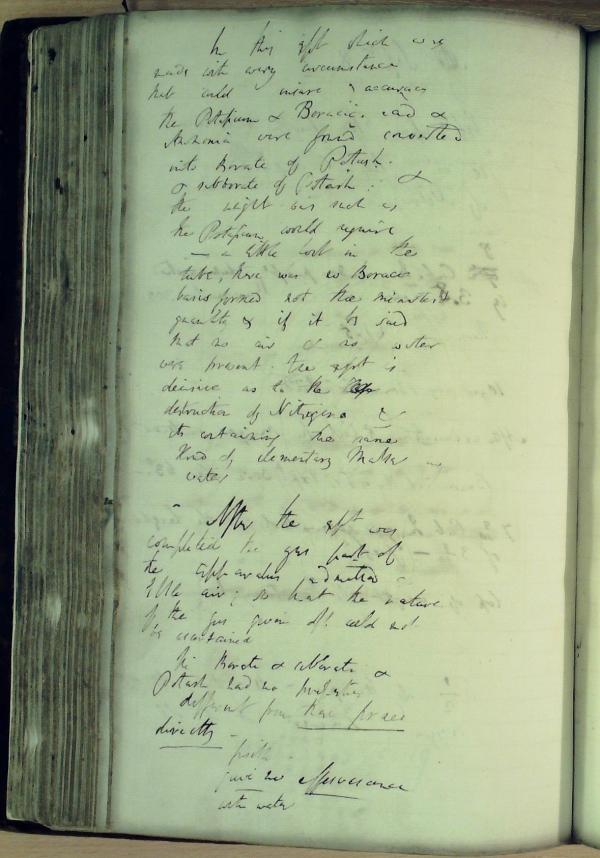 In this expt which was
made with every circumstance
that could insure accuracy
the Potassium & Boracic acid &
Ammonia were found converted
into Borate of Potash.
or subborate of Potash: &
the weight was such as
the Potassium would require
— a little lost in the
tube, there was no Boracic
basis formed not the minutest
quantity & if it be said
that no air & no water
were present. the expt is
decisive as to the
destruction of Nitrogene &
its containing the same
kind of elementary Matter as
water
After the expt was
completed the gas part of
the apparatus admitted
little air; so that the nature
of the gas given off could not
be ascertained
The Borate &
Potash had no properties
different from those formed
directly
give no effervescence
with water